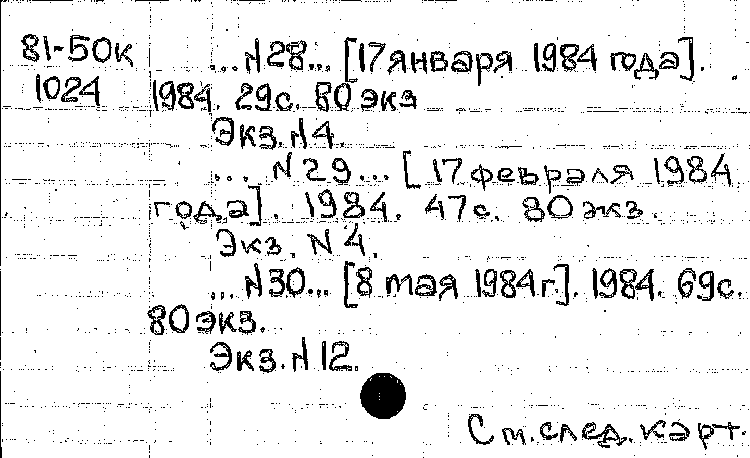 81-50к ...N28... [17 января 1984 года].
1024 1984. 29с. 80 экз
Экз. N4.
... N29... [17 февраля 1984
года]. 1984. 47с. 80 экз.
Экз. N 4.
... N30... [8 мая 1984 г.]. 1984. 69с.
80 экз.
Экз. N 12.
См. след. карт.